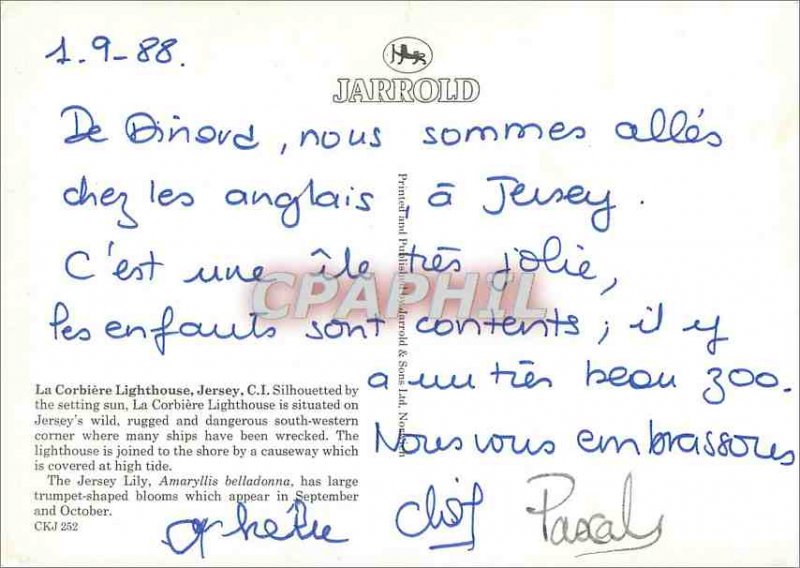 1.9-88.
JARROLD
De Dinard, nous sommes allés
chez les anglais, à Jersey.
C'est une île très jolie,
les enfants sont contents; il y
a un très beau zoo.
Nous vous embrassons
Pascale
CPAPHIL
Printed and Published by Jarrold & Sons Ltd, Norwich
La Corbière Lighthouse, Jersey, C.I. Silhouetted by
the setting sun, La Corbière Lighthouse is situated on
Jersey's wild, rugged and dangerous south-western
corner where many ships have been wrecked. The
lighthouse is joined to the shore by a causeway which
is covered at high tide.
The Jersey Lily, Amaryllis belladonna, has large
trumpet-shaped blooms which appear in September
and October.
CKJ 252